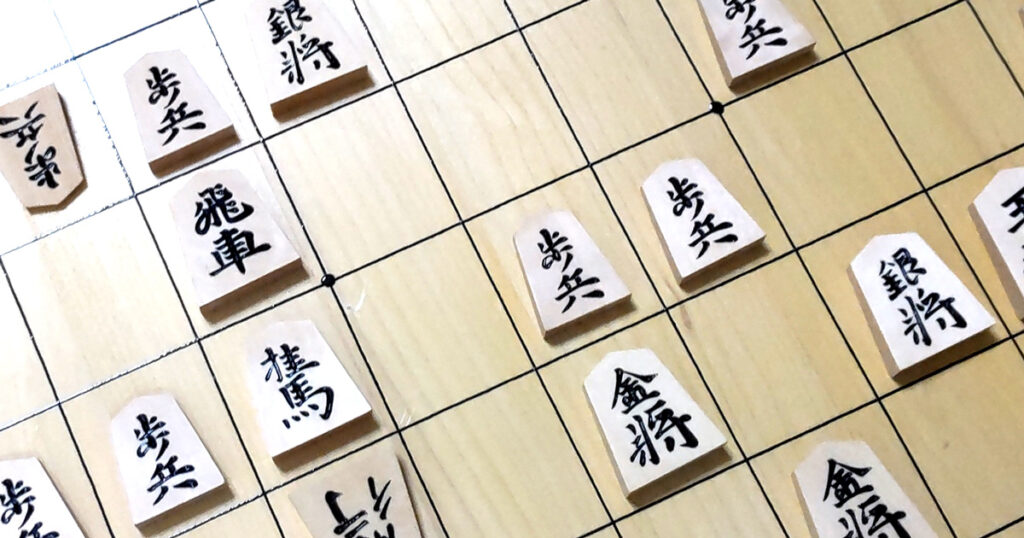 銀将
歩兵
歩兵
歩兵
飛車
歩兵
歩兵
銀将
桂馬
金将
歩兵
歩兵
金将